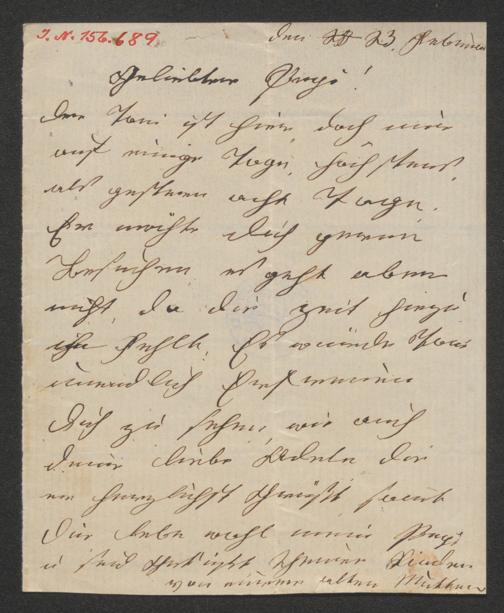 I. N. 156.689
den 23. Februar
Geliebter Pepi!
Der Toni ist hier, doch nur
auf einige Tage, höchstens
als gestern acht Tage.
Er möchte dich gerne
besuchen es geht aber
nicht, da die Zeit hiezu
ihm fehlt. Es würde
unendlich
dich zu sehen, wie auch
deine liebe Adele die
er herzlichst grüßt samt
dir lebe wohl mein Pepi
u seid
von eurer alten Mutter